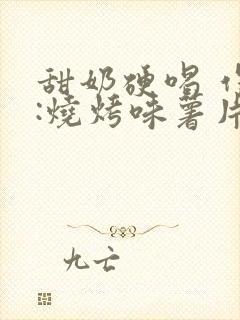 甜奶硬唱
:燒烤味薯片
九亡